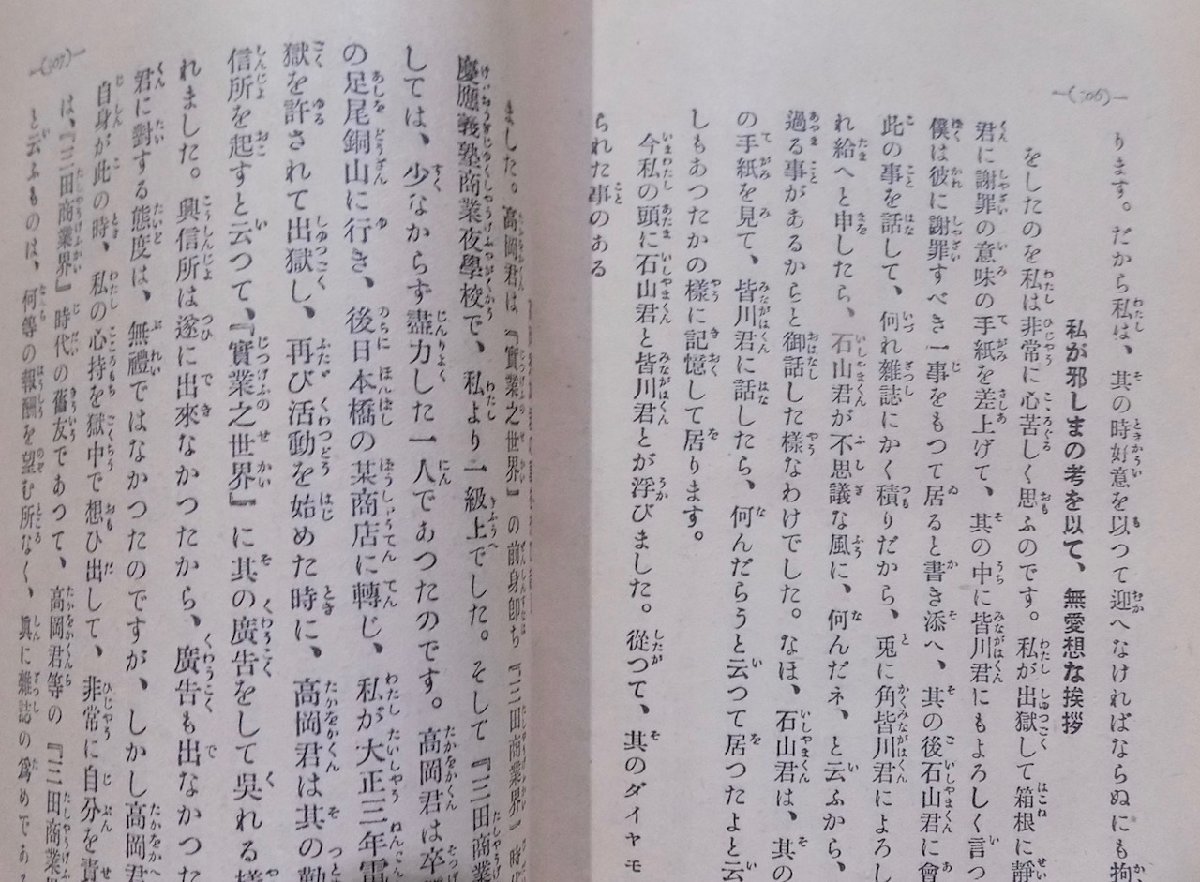 —(306)—
ります。だから私は、其の時好意を以つて迎へなければならぬにも拘
私が邪しまの考を以て、無愛想な挨拶
をしたのを私は非常に心苦しく思ふのです。私が出獄して箱根に靜
君に謝罪の意味の手紙を差上げて、其の中に皆川君にもよろしく言つ
僕は彼に謝罪すべき一事をもつて居ると書き添へ、其の後石山君に會
此の事を話して、何れ雜誌にかく積りだから、兎に角皆川君によろし
れ給へと申したら、石山君が不思議な風に、何んだネ、と云ふから、
過る事があるからと御話した樣なわけでした。なほ、石山君は、其の
の手紙を見て、皆川君に話したら、何んだらうと云つて居つたよと云
しもあつたかの樣に記憶して居ります。
今私の頭に石山君と皆川君とが浮びました。從つて、其のダイヤモ
られた事のある
—(307)—
ました。高岡君は『實業之世界』の前身卽ち『三田商業界』時
慶應義塾商業夜學校で、私より一級上でした。そして『三田商業
しては、少なからず盡力した一人であつたのです。高岡君は卒
の足尾銅山に行き、後日本橋の某商店に轉じ、私が大正三年電
獄を許されて出獄し、再び活動を始めた時に、高岡君は其の勤
信所を起すと云つて、『實業之世界』に其の廣告をして吳れる樣
れました。興信所は遂に出來なかつたから、廣告も出なかつた
君に對する態度は、無禮ではなかつたのですが、しかし高岡君
自身が此の時、私の心持を獄中で想ひ出して、非常に自分を責
は、『三田商業界』時代の舊友であつて、高岡君等の『三田商業
と云ふものは、何等の報酬を望む所なく、眞に雜誌の爲めであ